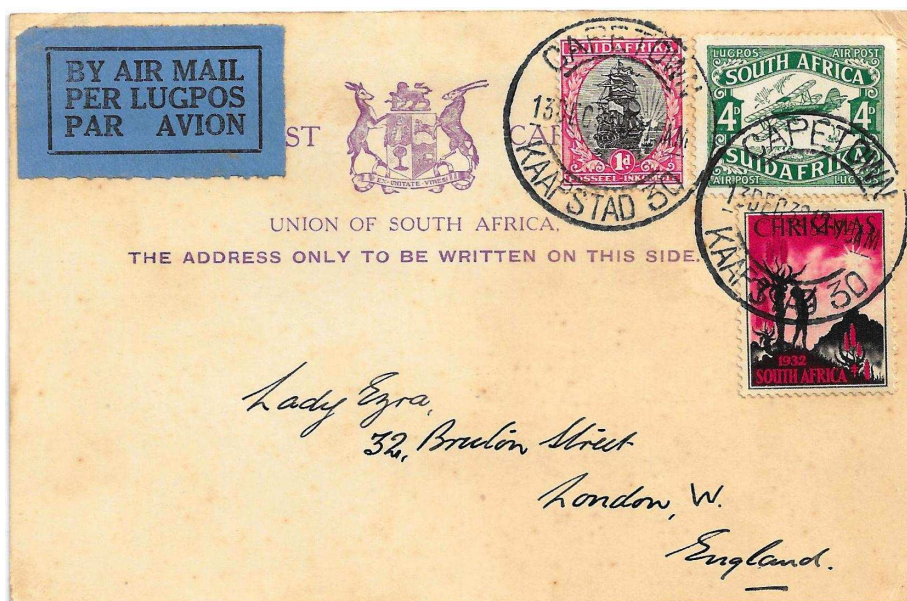 BY AIR MAIL
PER LUGPOS
PAR AVION
ST CA
EX·UNITATE·VIRES
UNION OF SOUTH AFRICA,
THE ADDRESS ONLY TO BE WRITTEN ON THIS SIDE.
SUIDAFRIKA
1d
CAPE TOWN
13 DEC
KAAPSTAD 30
LUGPOS AIR POST
SOUTH AFRICA
4D 4D
SUIDAFRIKA
AIR POST LUGPOS
CAPE TOWN
13 DEC 32
AM
KAAPSTAD 30
CHRISTMAS
1932
SOUTH AFRICA
Lady Ezra,
32, Bruton Street
London, W.
England.